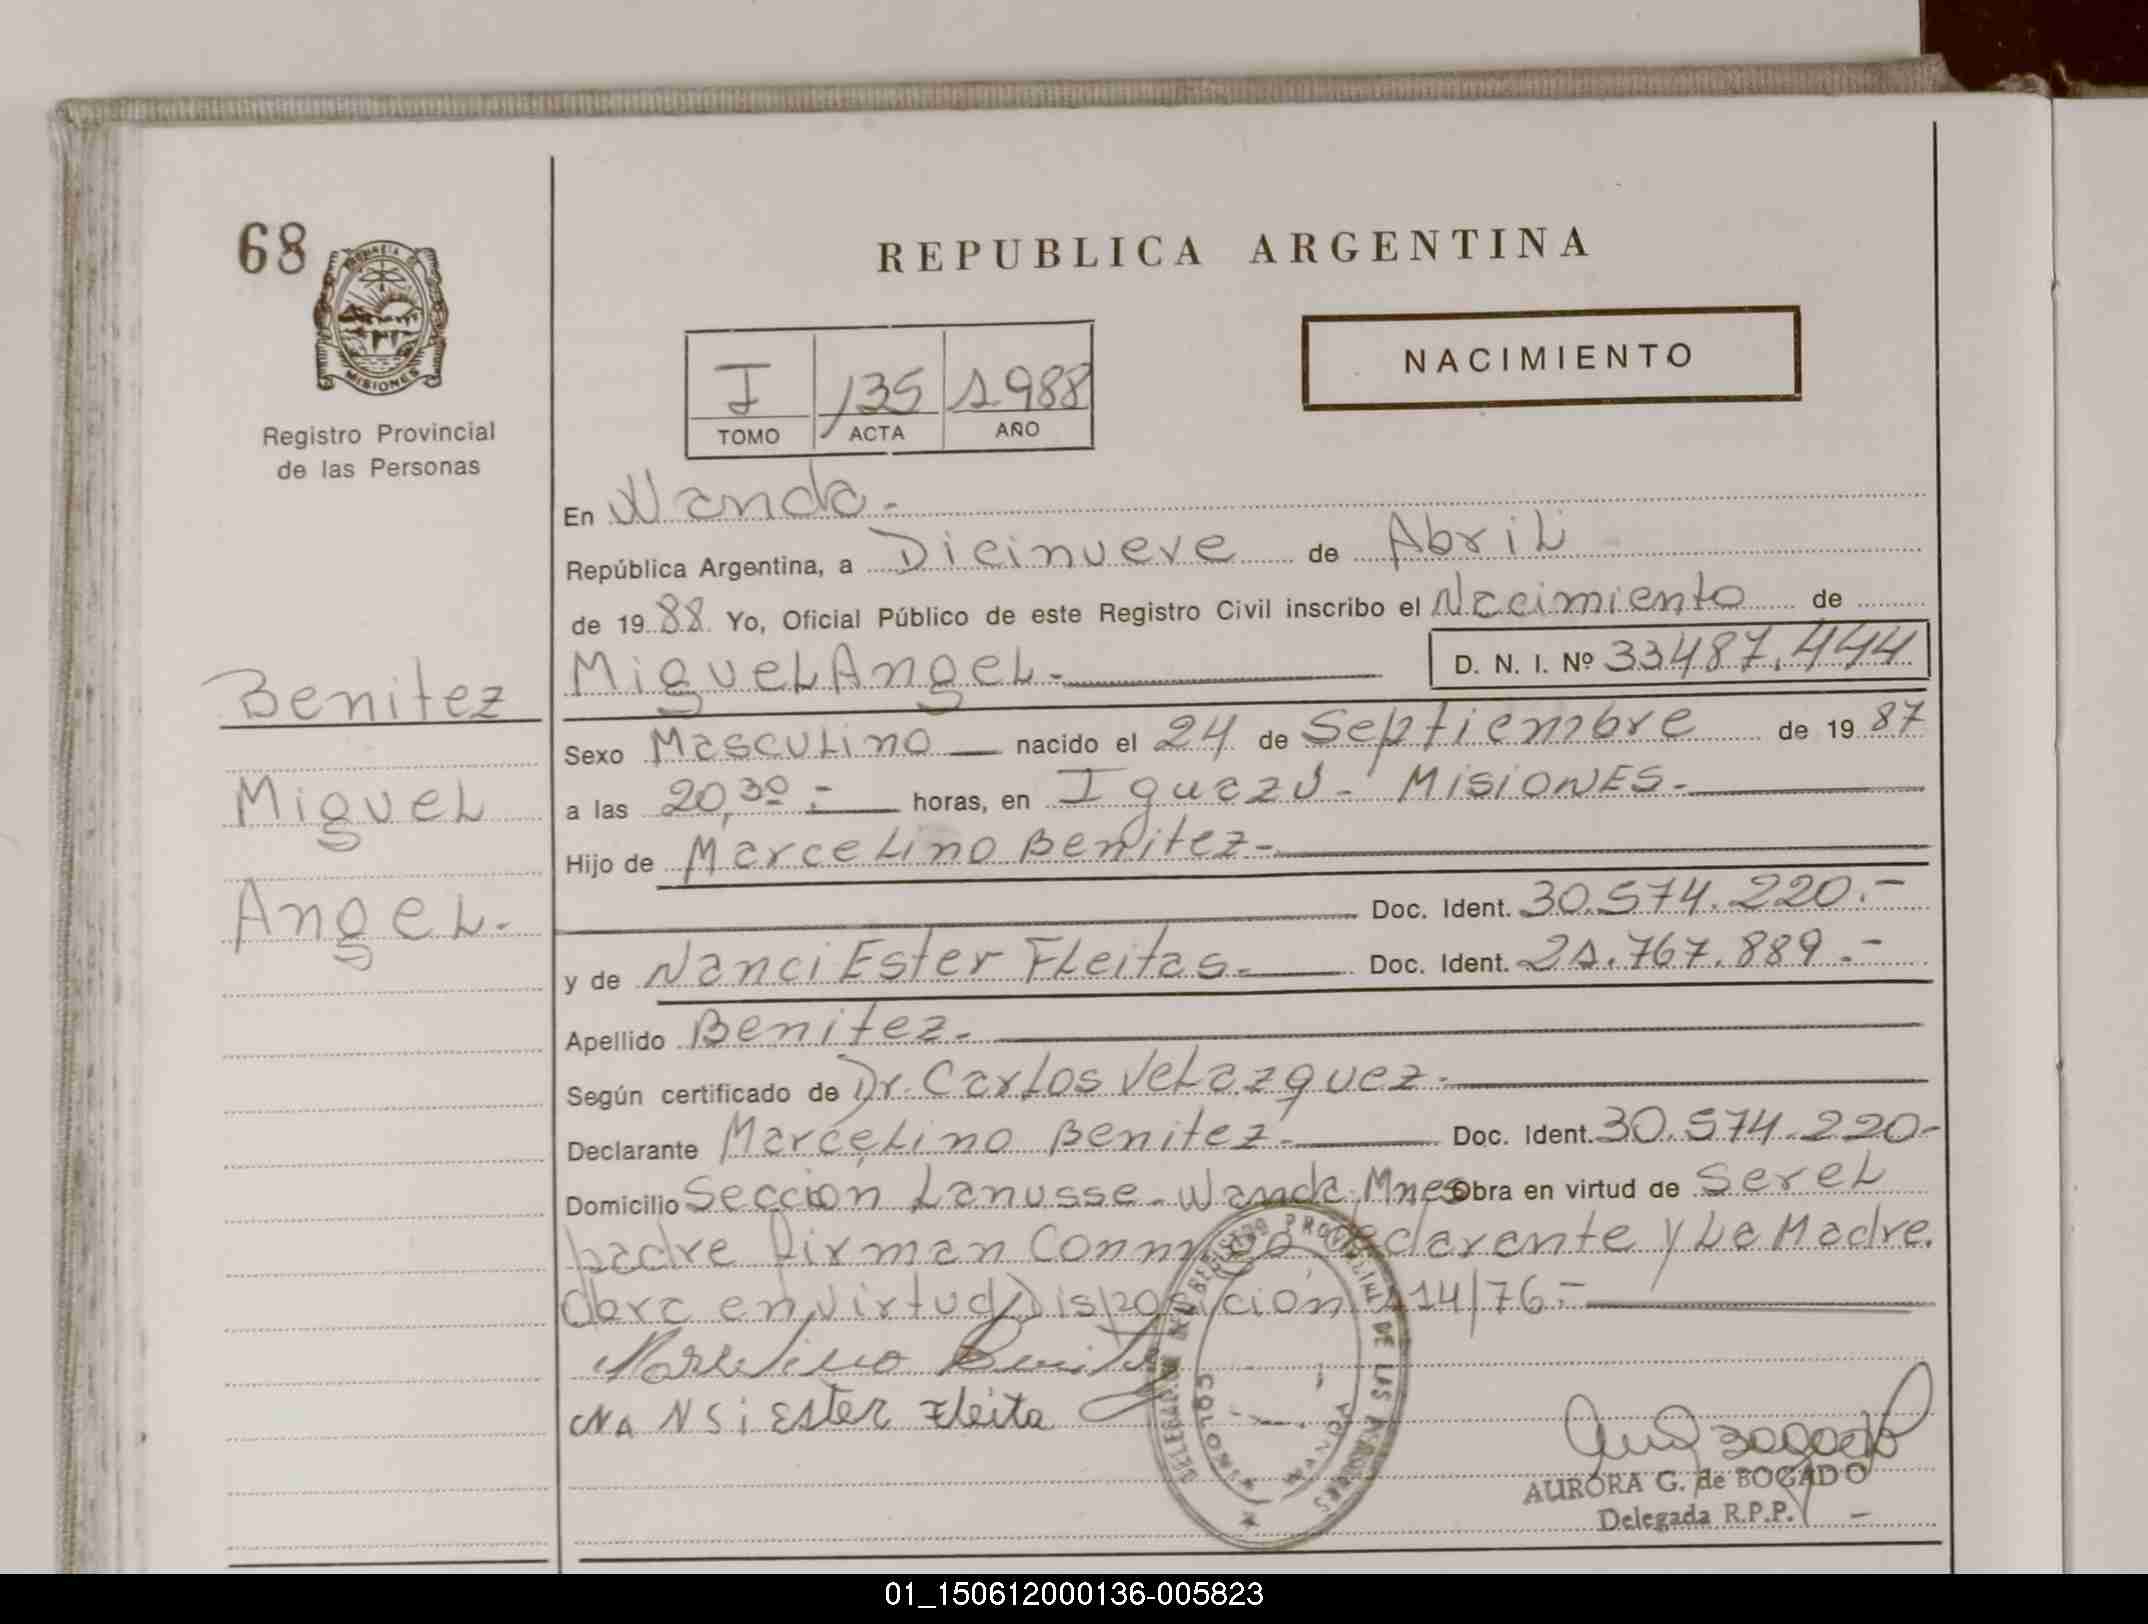 68
PROVINCIA DE
MISIONES
Registro Provincial
de las Personas
REPUBLICA ARGENTINA
NACIMIENTO
I 135 1988
TOMO ACTA AÑO
En Wanda.-
República Argentina, a Dicinueve de Abril
de 1988. Yo, Oficial Público de este Registro Civil inscribo el Nacimiento de
Miguel Angel.- D. N. I. Nº 33487.444
Benitez
Miguel
Angel.-
Sexo Masculino nacido el 24 de Septiembre de 1987
a las 20,30.- horas, en Iguazú - MISIONES.-
Hijo de Marcelino Benitez-
Doc. Ident. 30.574.220.-
y de Nanci Ester Fleitas.- Doc. Ident. 21.767.889.-
Apellido Benitez.-
Según certificado de Dr. Carlos Velazquez.
Declarante Marcelino Benitez.- Doc. Ident. 30.574.220-
Domicilio Seccion Lanusse - Wanda. Mnes Obra en virtud de ser el
padre firman Conmigo declarante y La Madre.
obra en virtud Disposicion 114/76.-
Marcelino Benitez
NANSi Ester Fleita
DELEGACION DEL REGISTRO PROVINCIAL DE LAS PERSONAS
WANDA
MISIONES
AURORA G. de BOGADO
Delegada R.P.P.
01_150612000136-005823